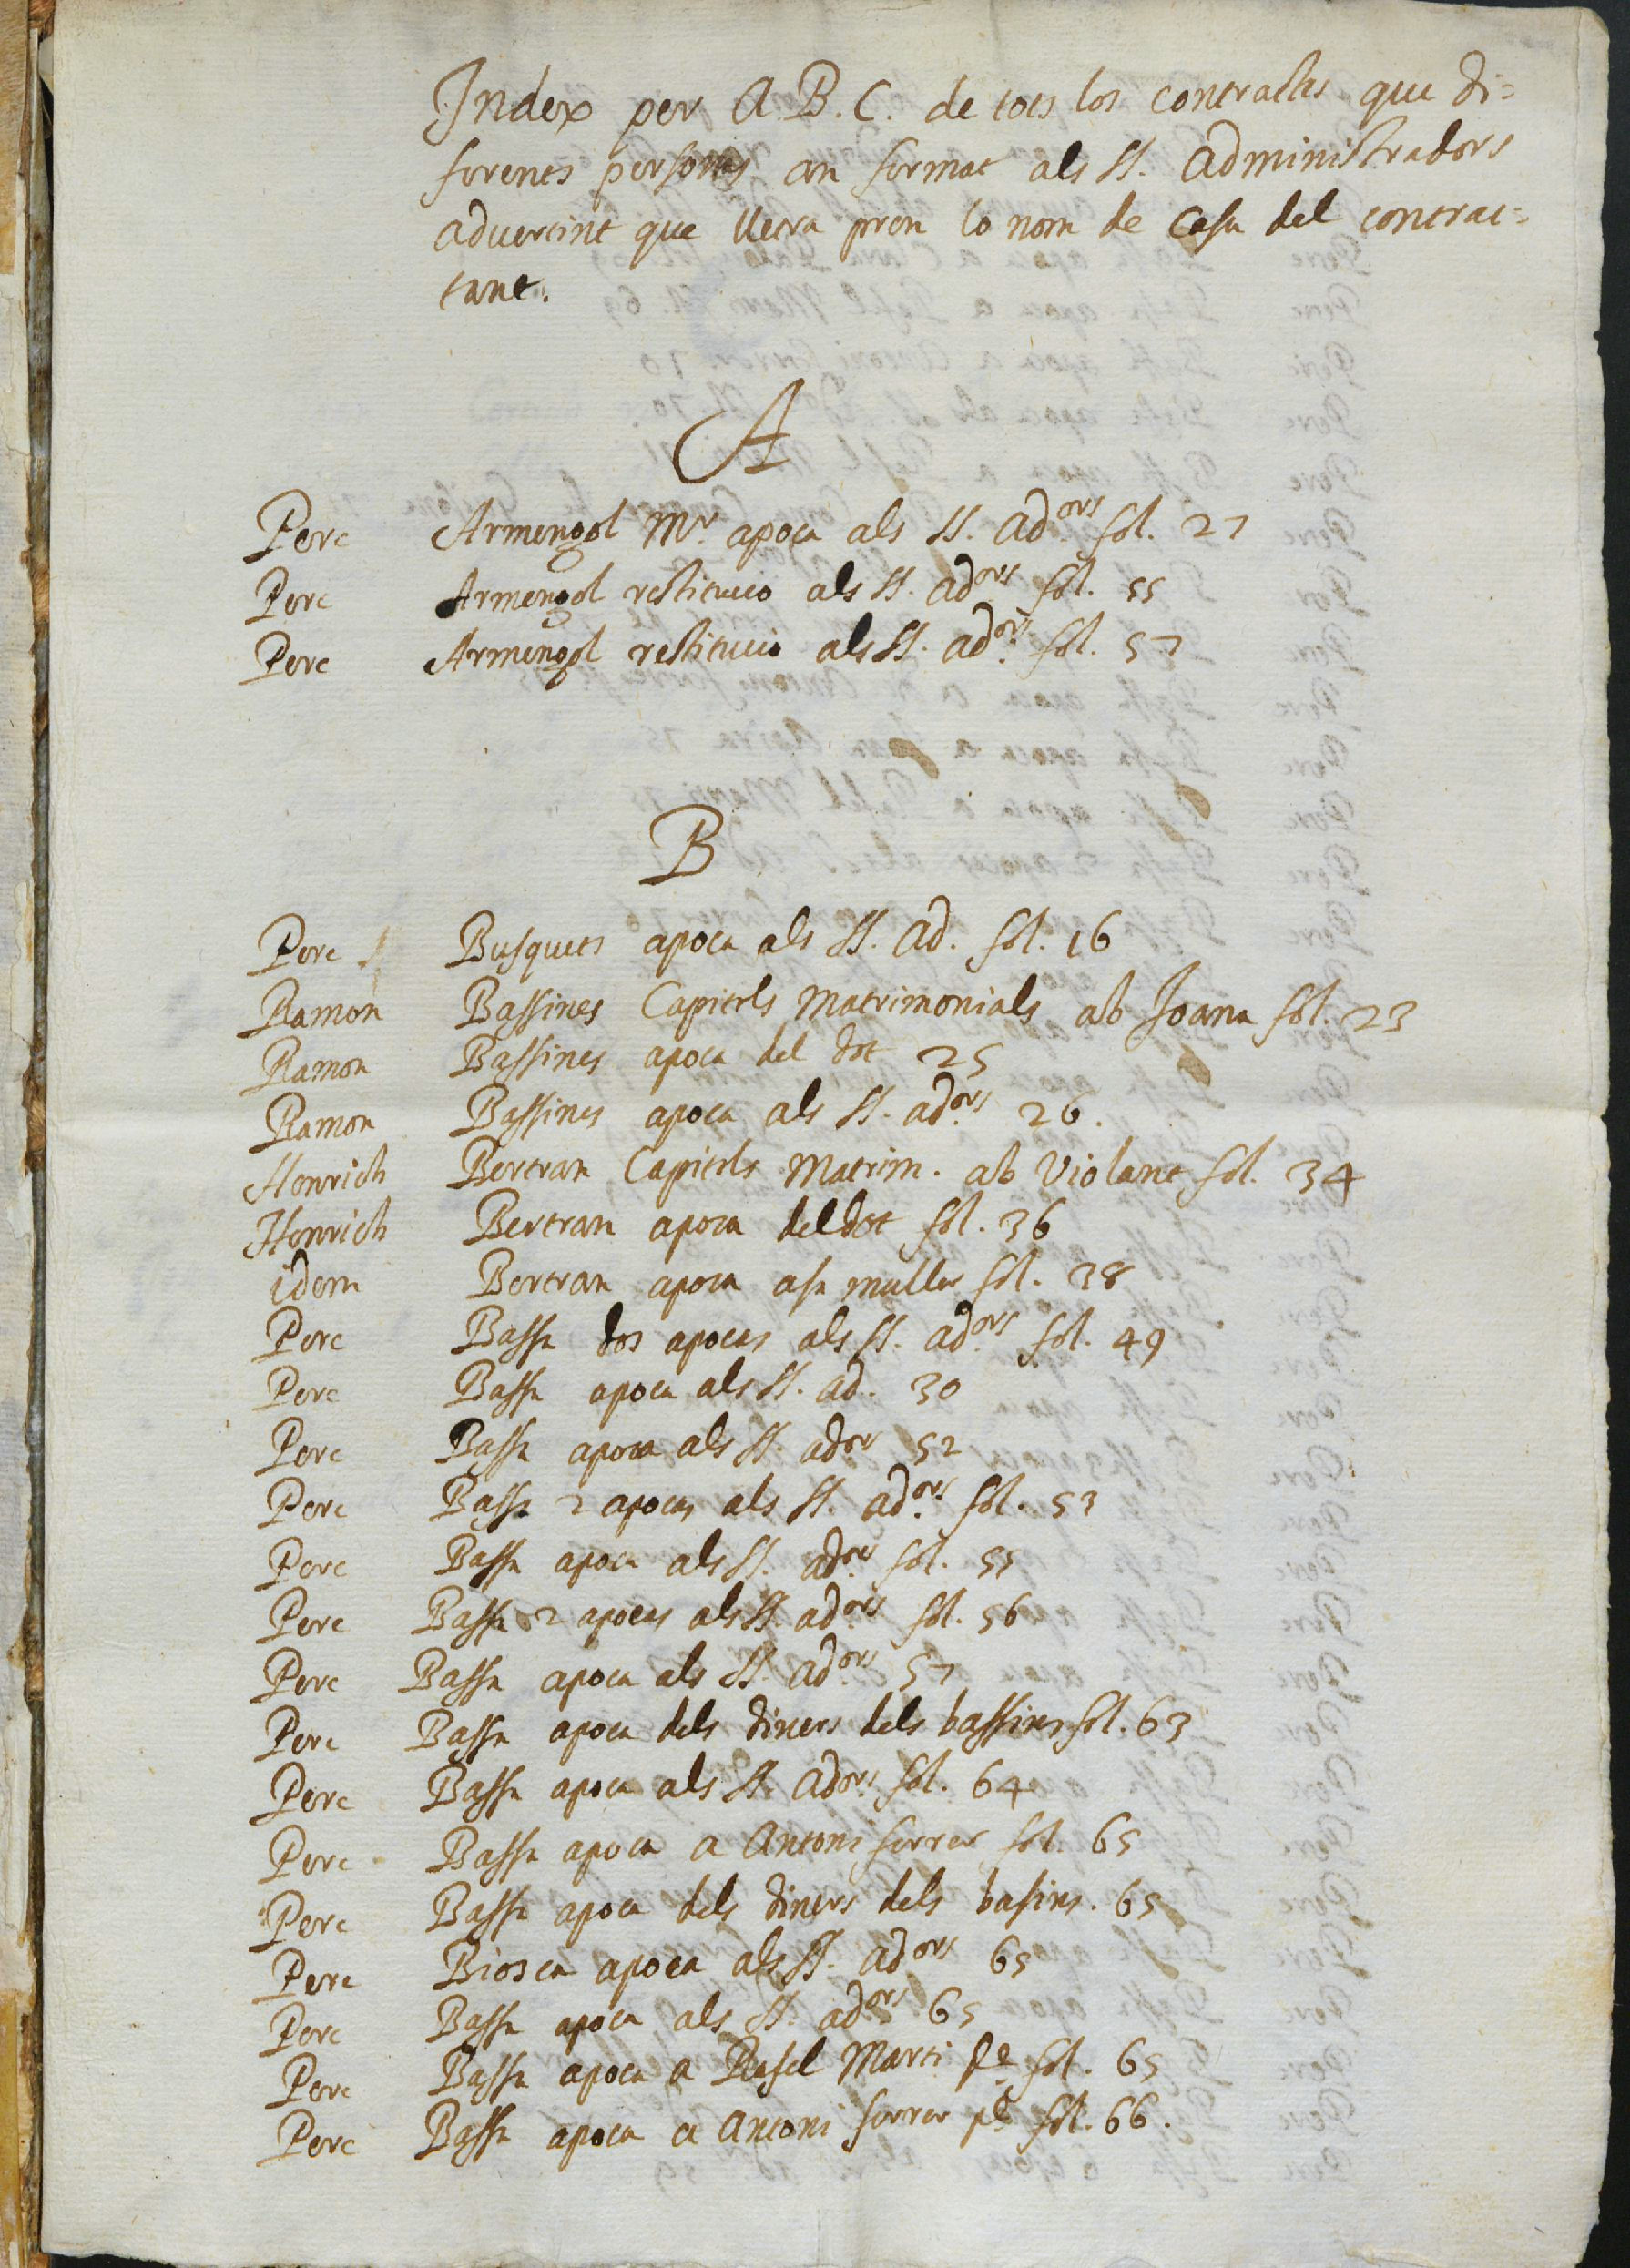 Index per A.B.C. de tots los contractes que di=
ferents personas an fermat als SS. Administradors
advertint que lletra pren lo nom de Casa del contrac=
tant.
A
Pere Armengol Mr. apoca als SS. adors fol. 27
Pere Armengol restitucio als SS. adors fol. 55
Pere Armengol restitucio als SS. adors fol. 57
B
Pere Busquets apoca als SS. ad. fol. 16
Ramon Bassines Capitols Matrimonials ab Joana fol. 23
Ramon Bassines apoca del dot 25
Ramon Bassines apoca als SS. adors 26.
Henrich Bertran Capitols Matrim. ab Violant fol. 34
Henrich Bertran apoca del dot fol. 36
idem Bertran apoca asa muller fol. 38
Pere Bassa dos apocas als SS. adors fol. 49
Pere Bassa apoca als SS. ad. 30
Pere Bassa apoca als SS. ador 52
Pere Bassa 2 apocas als SS. adors fol. 53
Pere Bassa apoca als SS. adors fol. 55
Pere Bassa 2 apocas als SS. adors fol. 56
Pere Bassa apoca als SS. adors 57
Pere Bassa apoca dels diners dels bassins fol. 63
Pere Bassa apoca als SS. adors fol. 64
Pere Bassa apoca a Antoni ferrer fol. 65
Pere Bassa apoca dels diners dels basins. 65
Pere Biosca apoca als SS. adors 65
Pere Bassa apoca als SS. adors 65
Pere Bassa apoca a Rafel Marti fol. 65
Pere Bassa apoca a Antoni ferrer fol. 66.